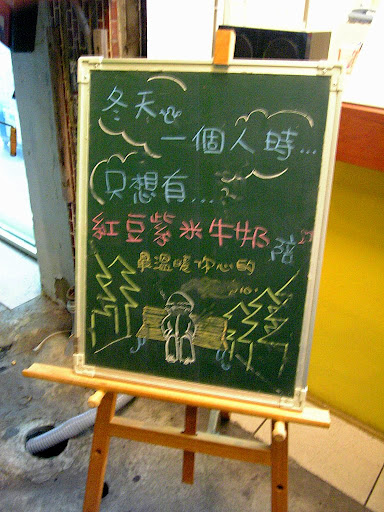 冬天
一個人時...
只想有...
紅豆紫米牛奶陪
最溫暖你心的